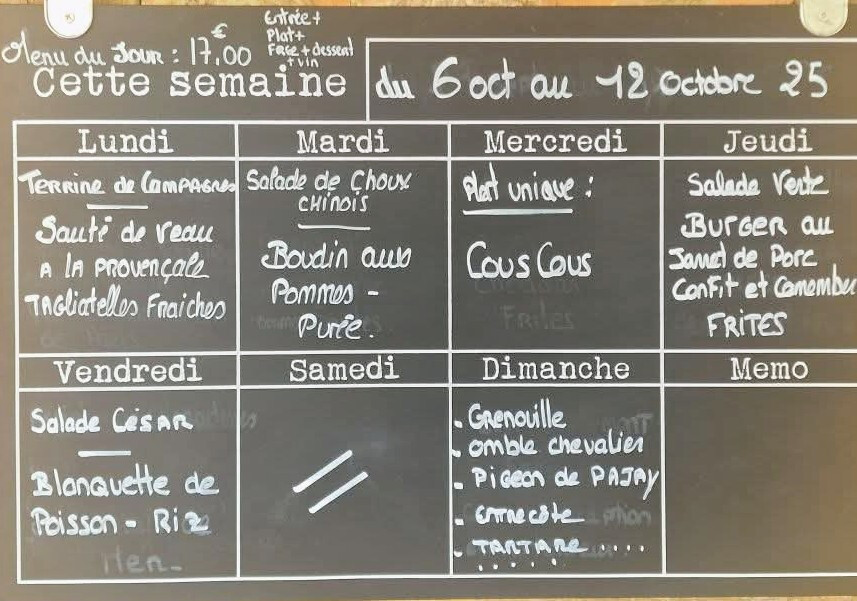 Menu du Jour : 17.00 €
Entrée +
Plat +
Frage + dessert
+ vin
Cette semaine
du 6 oct au 12 octobre 25
Lundi
Terrine de Campagne
Sauté de veau
à la Provençale
Tagliatelles Fraiches
Mardi
Salade de Choux
chinois
Boudin aux
Pommes -
Purée.
Mercredi
Plat unique :
Cous Cous
Jeudi
Salade Verte
Burger au
Jarret de Porc
Confit et Camember
FRITES
Vendredi
Salade César
Blanquette de
Poisson - Riz
Samedi
Dimanche
. Grenouille
. omble chevalier
. Pigeon de PAJAY
. Entrecôte
. TARTARE ....
......
Memo